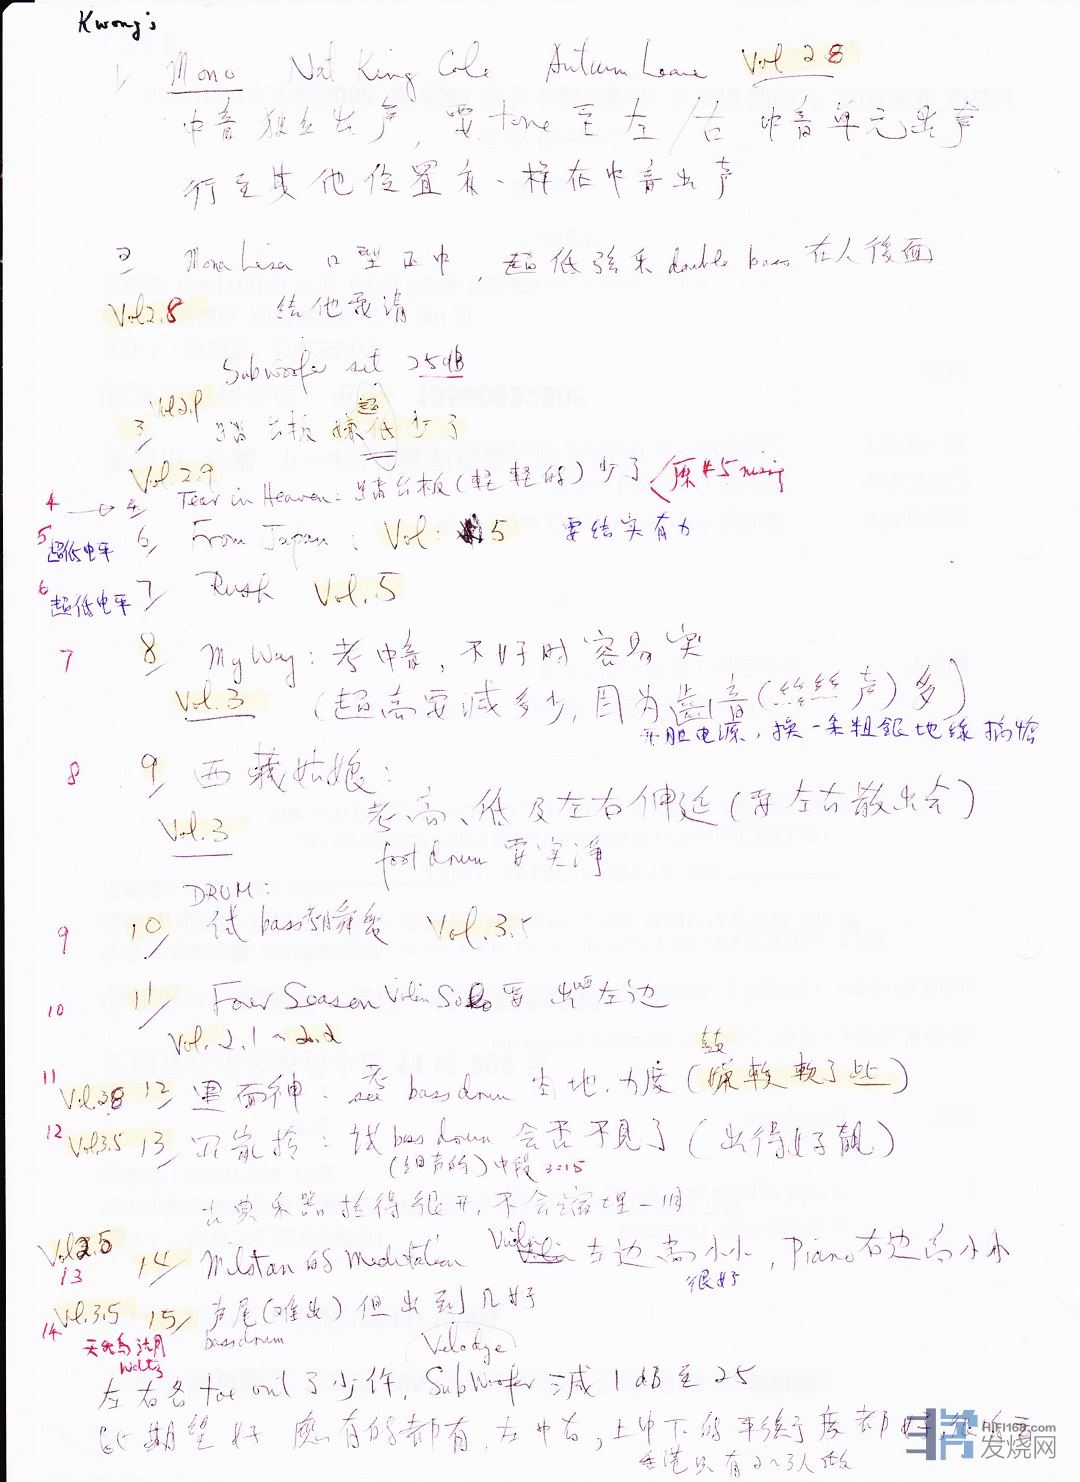 Kwong's
1/ Mono Nat King Cole Autumn Leave Vol 28
中音独立出声, 要 tone 至左/右 中音单元出声
行至其他位置亦一样在中音出声
2 Mona Lisa 口型正中, 超低弦乐 double bass 在人後面
Vol2.8 结他要清
Subwoofer set 25dB
3/ Vol2.9 踏台板嫌超低少了
Vol2.9
4 Tear in Heaven: 踏台板(轻轻的)少了 原#5 rising
5 6/ From Japan: Vol: 5 要结实有力
超低电平
6 7/ Rush Vol.5
超低电平
7 8/ My Way: 考中音, 不好时容易突
Vol.3 (超高要减多少, 因为齒音(丝丝声)多)
胆电源, 换一条粗銀地線搞惦
8 9/ 西藏姑娘:
考高、低及左右伸延(要左右散出去)
Vol.3
foot drum 要实净
DRUM:
9 10/ 试 bass 瞬变 Vol.3.5
10 11/ Four Season Violin Solo 要出 左边
Vol. 2.1~2.2
11 Vol.28 12/ 黑面神: bass drum 力度(嫌鼓軟軟了些)
12 Vol3.5 13/ 试 bass drum 会否不见了(出得好靓)
(细声的)中段 3:15
古典乐器 得很开, 不会 埋一
Vol2.5
13 14/ Milstan 的 Meditation Violin 左边高小小, Piano 右边高小小
很好
Vol.3.5 15/ 声尾(难出)但出到几好
14 bass drum
Waltz Velodge
左右各 toe out 了少许, Subwoofer 减1dB至25
期望好 應有的都有, 左中右, 上中下的平 度都好
香港只有2~3人做
HIFI168.com
发烧网